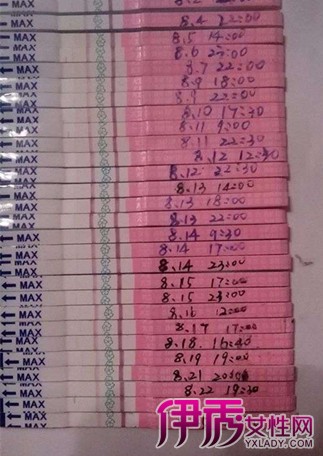 MAX 8.4 22:00
MAX 8.5 14:00
MAX 8.6
MAX 8.7 22:00
MAX 8.9 18:00
MAX 8.9 22:00
MAX 8.10 17:30
MAX 8.11 9:00
MAX 8.11 22:30
MAX 8.12 12:30
MAX 8.12 22:30
MAX 8.13 14:00
MAX 8.13 18:00
MAX 8.13 22:00
MAX 8.14 9:30
MAX 8.14 17:00
MAX 8.14 23:00
MAX 8.15 17:00
MAX 8.15 23:00
MAX 8.16 12:00
MAX 8.17 17:00
MAX 8.18. 16:40
MAX 8.19 19:00
MAX 8.21
MAX 8.22 19:30
MAX
伊秀女性网
YXLADY.COM